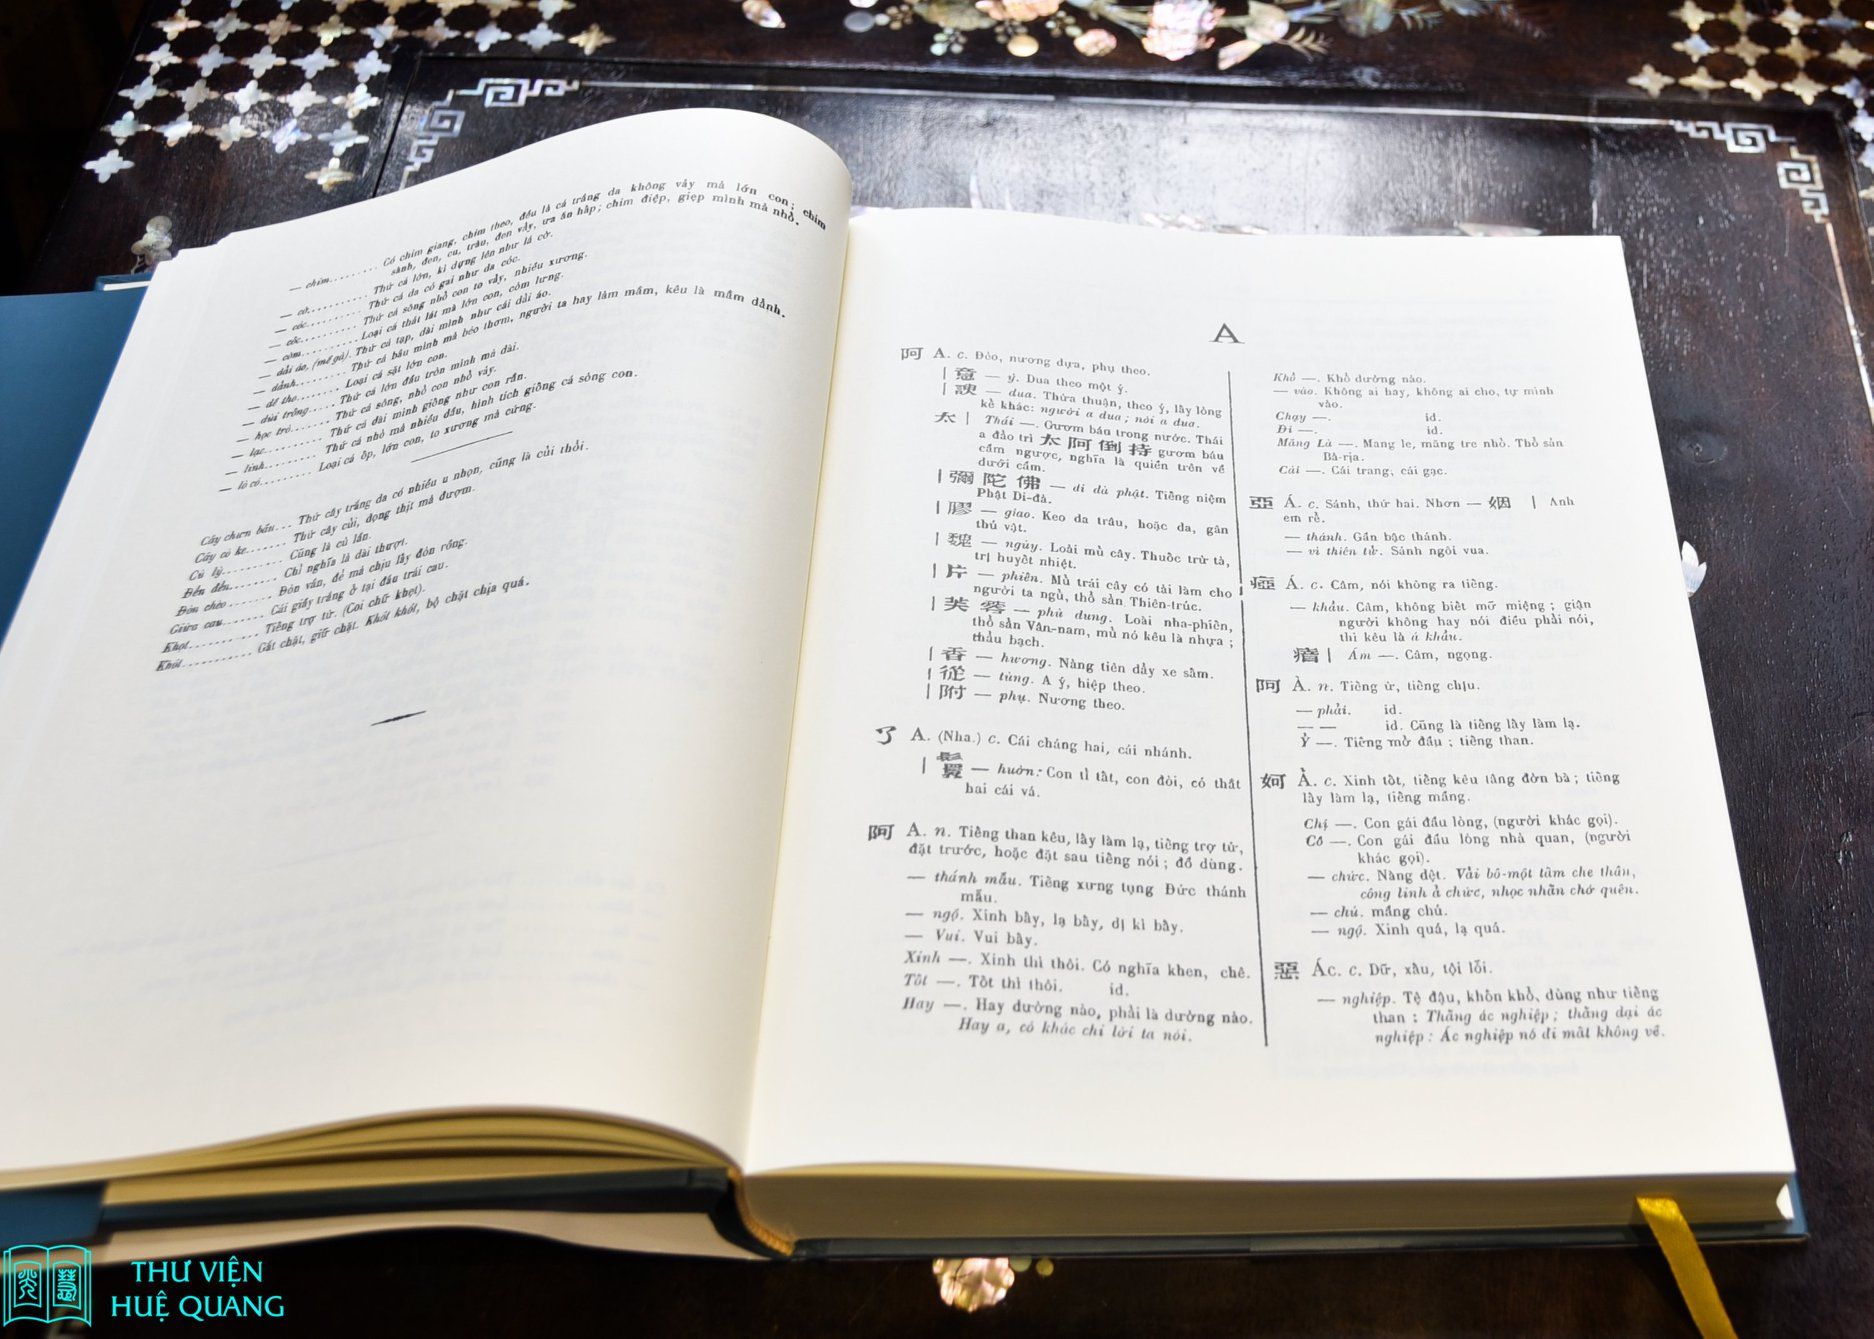 — chim......... Có chim giang, chim theo, đều là cá trắng da không vảy mà lớn con; chim
sành, đen, cu, trâu, đen vảy, ưa ăn hấp; chim điệp, giẹp mình mà nhỏ.
— cờ........... Thứ cá lớn, kì dựng lên như lá cờ.
— cóc.......... Thứ cá da có gai như da cóc.
— cốc.......... Thứ cá sông nhỏ con to vảy, nhiều xương.
— còm.......... Loại cá thát lát mà lớn con, còm lưng.
— dải áo, (mề gà). Thứ cá tạp, dài mình như cái dải áo.
— dảnh......... Thứ cá bầu mình mà béo thơm, người ta hay làm mắm, kêu là mắm dảnh.
Loại cá sặt lớn con.
— dùi trống..... Thứ cá lớn đầu tròn mình mà dài.
— học trò....... Thứ cá sông, nhỏ con nhỏ vảy.
— lạc.......... Thứ cá dài mình giống như con rắn.
— linh......... Thứ cá nhỏ mà nhiều dầu, hình tích giống cá sông con.
— lò có......... Loại cá ốp, lớn con, to xương mà cứng.
Cây chưn bầu... Thứ cây trắng da có nhiều u nhọn, cũng là củi thổi.
Cây cò ke....... Thứ cây củi, dọng thịt mà đượm.
Cù lý.......... Cũng là cù lần.
Đền đền........ Chỉ nghĩa là dài thượi.
Đòn chèo....... Đòn ván, để mà chịu lấy đòn rồng.
Giừa cau....... Cái giấy trắng ở tại đầu trái cau.
Khọt........... Tiếng trợ từ. (Coi chữ khọt).
Khót........... Gắt chặt, giữ chặt. Khót khót, bộ chặt chịa quá.
A
阿 A. c. Đèo, nương dựa, phụ theo.
| 意 — ý. Dua theo một ý.
| 諛 — dua. Thừa thuận, theo ý, lấy lòng
kẻ khác: người a dua; nói a dua.
太 | Thái —. Gươm báu trong nước. Thái
a đảo trì 太阿倒持 gươm báu
cầm ngược, nghĩa là quiền trên về
dưới cầm.
| 彌陀佛 — di dà phật. Tiếng niệm
Phật Di-đà.
| 膠 — giao. Keo da trâu, hoặc da, gân
thú vật.
| 魏 — ngùy. Loài mủ cây. Thuốc trừ tà,
trị huyết nhiệt.
| 片 — phiên. Mủ trái cây có tài làm cho
người ta ngủ, thổ sản Thiên-trúc.
| 芙蓉 — phù dung. Loài nha-phiên,
thổ sản Vân-nam, mủ nó kêu là nhựa;
thầu bạch.
| 香 — hương. Nàng tiên đẩy xe sấm.
| 從 — tùng. A ý, hiệp theo.
| 附 — phụ. Nương theo.
了 A. (Nha.) c. Cái cháng hai, cái nhánh.
| 鬟 — huờn: Con tì tất, con đòi, có thắt
hai cái vá.
阿 A. n. Tiếng than kêu, lấy làm lạ, tiếng trợ từ,
đặt trước, hoặc đặt sau tiếng nói; đồ dùng.
— thánh mẫu. Tiếng xưng tụng Đức thánh
mẫu.
— ngộ. Xinh bấy, lạ bấy, dị kì bấy.
— Vui. Vui bấy.
Xinh —. Xinh thì thôi. Có nghĩa khen, chê.
Tốt —. Tốt thì thôi. id.
Hay —. Hay dường nào, phải là dường nào.
Hay a, có khác chi lời ta nói.
Khổ —. Khổ dường nào.
— vào. Không ai hay, không ai cho, tự mình
vào.
Chạy —. id.
Đi —. id.
Măng Là —. Mang le, măng tre nhỏ. Thổ sản
Bà-rịa.
Cái —. Cái trang; cái gạc.
亞 Á. c. Sánh, thứ hai. Nhơn — 姻 | Anh
em rể.
— thánh. Gần bậc thánh.
— vì thiên tử. Sánh ngôi vua.
瘂 Á. c. Câm, nói không ra tiếng.
— khẩu. Câm, không biết mở miệng; giận
người không hay nói điều phải nói,
thì kêu là á khẩu.
瘖 | Ám —. Câm, ngọng.
阿 À. n. Tiếng ừ, tiếng chịu.
— phải. id.
— — id. Cũng là tiếng lấy làm lạ.
Ỷ —. Tiếng mở đầu; tiếng than.
妸 Ả. c. Xinh tốt, tiếng kêu tâng đờn bà; tiếng
lấy làm lạ, tiếng mắng.
Chị —. Con gái đầu lòng, (người khác gọi).
Cô —. Con gái đầu lòng nhà quan, (người
khác gọi).
— chức. Nàng dệt. Vải bô-một tấm che thân,
công linh ả chức, nhọc nhằn chớ quên.
— chú. mắng chủ.
— ngộ. Xinh quá, lạ quá.
惡 Ác. c. Dữ, xấu, tội lỗi.
— nghiệp. Tệ đậu, khốn khổ, dùng như tiếng
than: Thằng ác nghiệp; thằng dại ác
nghiệp: Ác nghiệp nó đi mất không về.
THƯ VIỆN
HUỆ QUANG